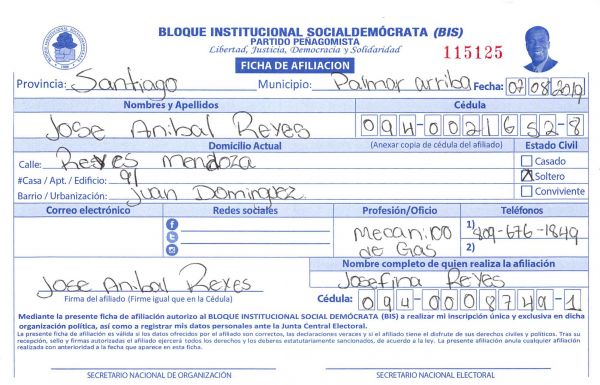 BLOQUE INSTITUCIONAL SOCIALDEMÓCRATA (BIS)
PARTIDO PEÑAGOMISTA
Libertad, Justicia, Democracia y Solidaridad
115125
FICHA DE AFILIACION
Provincia: Santiago Municipio: Palmar arriba Fecha: 07 08 2019
Nombres y Apellidos Cédula
Jose Anibal Reyes 094-0021652-8
Domicilio Actual (Anexar copia de cédula del afiliado) Estado Civil
Calle: Reyes Mendoza Casado
#Casa / Apt. / Edificio: 91 X Soltero
Barrio / Urbanización: Juan Dominguez Conviviente
Correo electrónico Redes sociales Profesión/Oficio Teléfonos
Mecanico de Gas 1) 809-676-1849
2)
Nombre completo de quien realiza la afiliación
Jose Anibal Reyes Josefina Reyes
Firma del afiliado (Firme igual que en la Cédula) Cédula: 094-0008749-1
Mediante la presente ficha de afiliación autorizo al BLOQUE INSTITUCIONAL SOCIAL DEMÓCRATA (BIS) a realizar mi inscripción única y exclusiva en dicha
organización política, así como a registrar mis datos personales ante la Junta Central Electoral.
La presente ficha de afiliación es válida si los datos ofrecidos por el afiliado son correctos, las declaraciones veraces y si el afiliado tiene el disfrute de sus derechos civiles y políticos. Tras su
recepción, sello y firmas autorizadas el afiliado ejercerá todos los derechos y los deberes estatutariamente sancionados, de acuerdo a la ley. La presente afiliación anula cualquier afiliación
realizada con anterioridad a la fecha que aparece en esta ficha.
SECRETARIO NACIONAL DE ORGANIZACIÓN SECRETARIO NACIONAL ELECTORAL